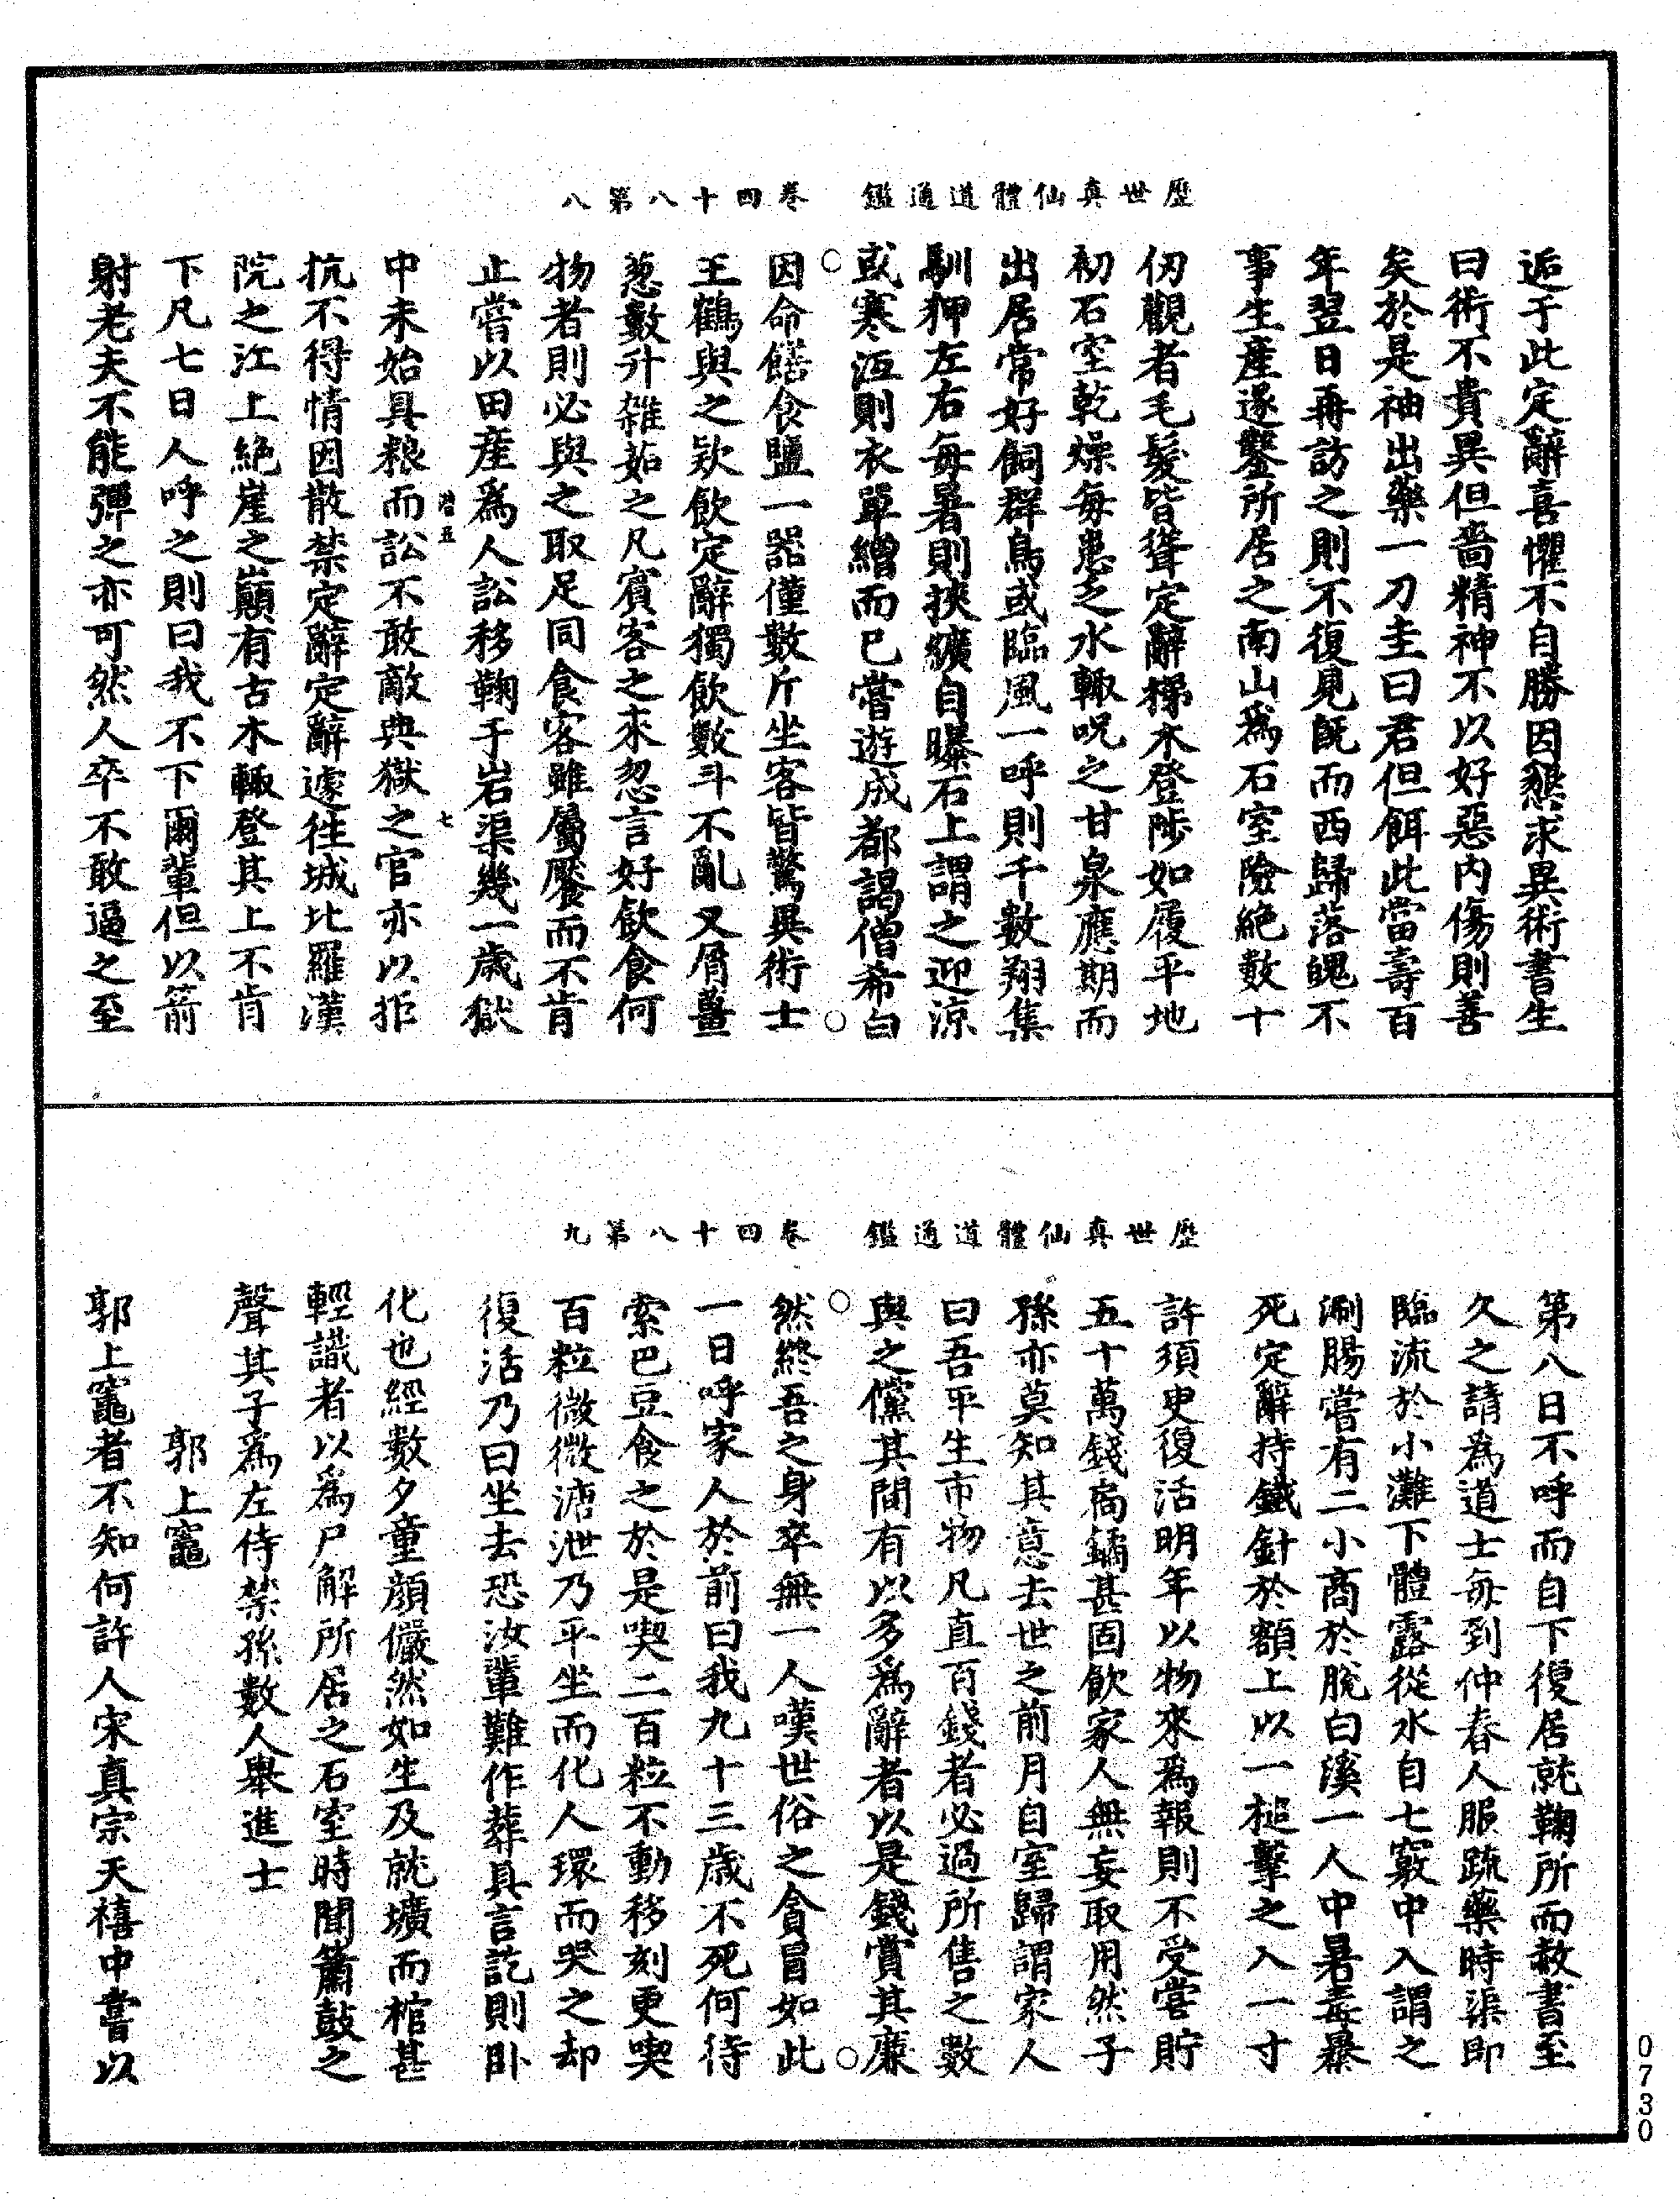 歷世真仙體道通鑑　卷四十八第八
逅于此定辭喜懼不自勝因懇求異術書生
曰術不貴異但嗇精神不以好惡内傷則善
矣於是袖出藥一刀圭曰君但餌此當壽百
年翌日再訪之則不復見既而西歸落魄不
事生產遂鑿所居之南山爲石室險絶數十
仞觀者毛髮皆聳定辭梯木登陟如履平地
初石室乾燥每患乏水輒呪之甘泉應期而
出居常好飼群鳥或臨風一呼則千數翔集
馴狎左右每暑則挾纊自曝石上謂之迎涼
或寒沍則衣單繒而已嘗遊成都謁僧希白
因命饍食鹽一器僅數斤坐客皆驚異術士
王鶴與之欵飲定辭獨飲數斗不亂又屑薑
葱數升雜茹之凡賓客之來忽言好飲食何
物者則必與之取足同食客雖屬饜而不肯
止嘗以田産爲人訟移鞫于岩渠幾一歲獄
中未始具粮而訟不敢敵典獄之官亦以拒
抗不得情因散禁定辭定辭遽徃城北羅漢
院之江上絶崖之巔有古木輒登其上不肯
下凡七日人呼之則曰我不下爾輩但以箭
射老夫不能彈之亦可然人卒不敢逼之至
歷世真仙體道通鑑　卷四十八第九
第八日不呼而自下復居就鞫所而赦書至
久之請爲道士每到仲春人服疏藥時渠即
臨流於小灘下體露從水自七竅中入謂之
涮腸嘗有二小商於脫白溪一人中暑毒暴
死定辭持鐵針於額上以一槌擊之入一寸
許須臾復活明年以物來爲報則不受嘗貯
五十萬錢扃鐍甚固飲家人無妄取用然子
孫亦莫知其意去世之前月自室歸謂家人
曰吾平生市物凡直百錢者必過所售之數
與之儻其間有以多爲辭者以是錢賞其廉
然終吾之身卒無一人嘆世俗之貪冒如此
一日呼家人於前曰我九十三歲不死何待
索巴豆食之於是喫二百粒不動移刻更喫
百粒微微溏泄乃平坐而化人環而哭之却
復活乃曰坐去恐汝輩難作葬具言訖則卧
化也經數夕童顔儼然如生及就壙而棺甚
輕識者以爲尸解所居之石室時聞簫鼓之
聲其子爲左侍禁孫數人舉進士
郭上竈
郭上竈者不知何許人宋真宗天禧中嘗以
0730